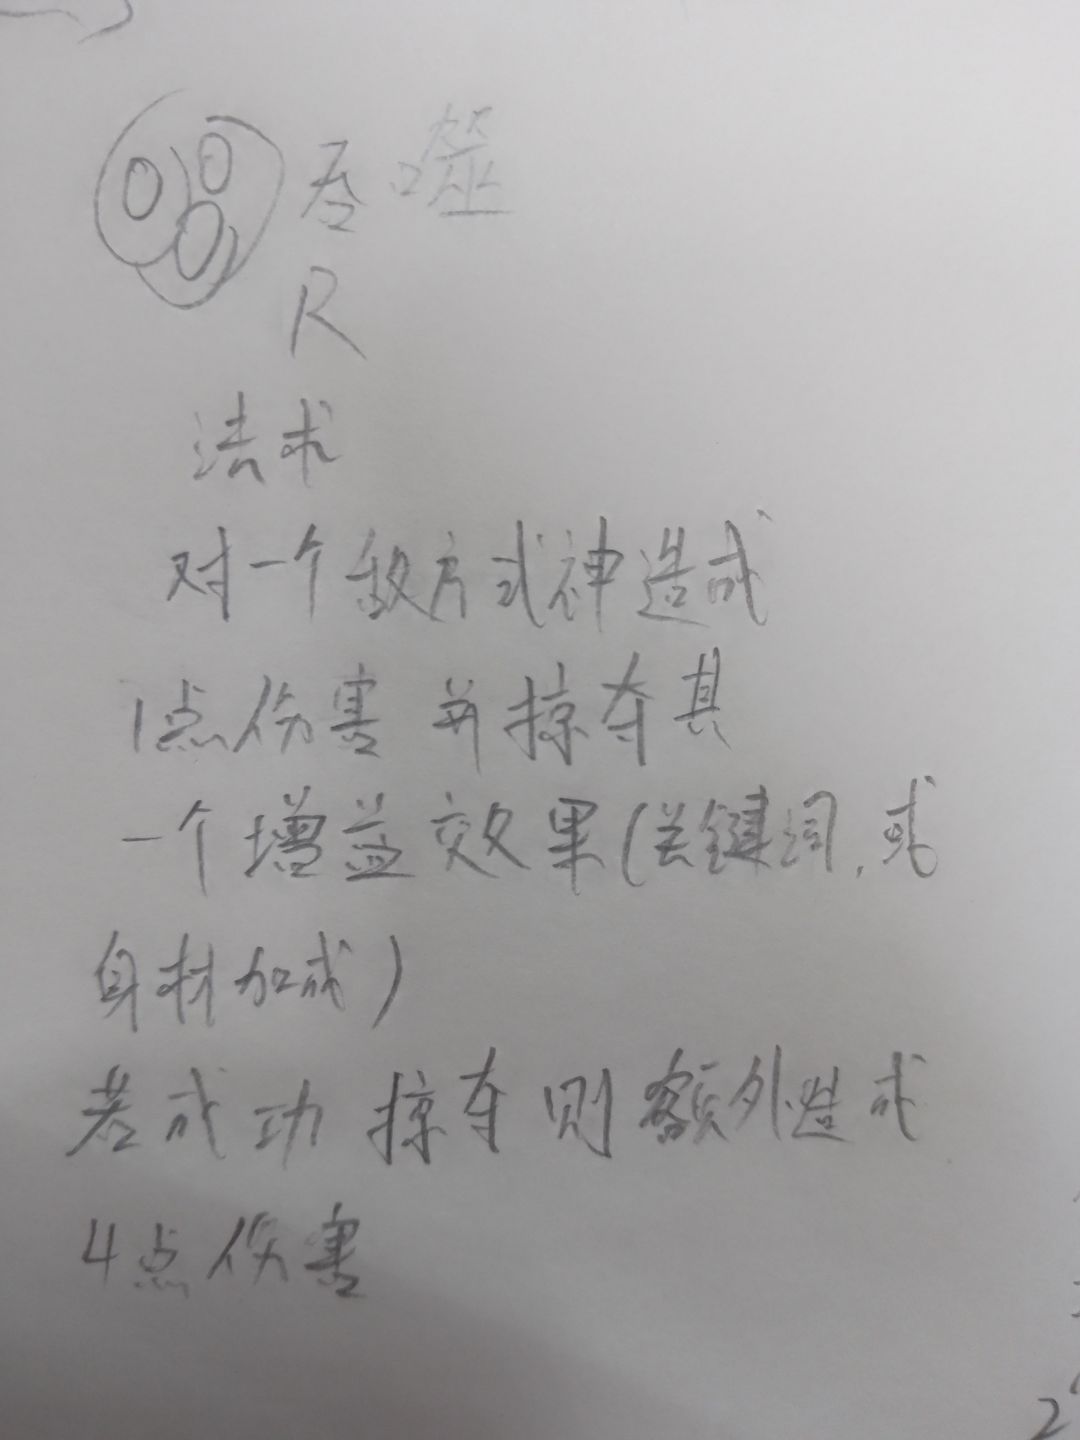 吞噬
R
法术
对一个敌方式神造成
1点伤害并掠夺其
一个增益效果(关键词,或
身材加成)
若成功掠夺则额外造成
4点伤害
2